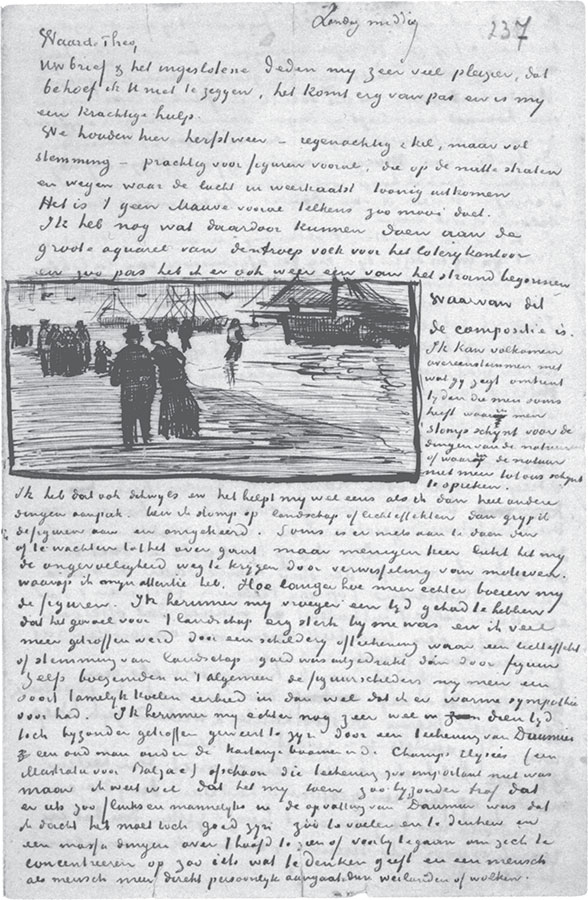 Zondag middag
237
Waarde Theo,
Uw brief & het ingeslotene deden my zeer veel pleizier, dat
behoef ik U niet te zeggen, het komt erg van pas en is my
een krachtige hulp.
We houden hier herfstweer – regenachtig & kil, maar vol
stemming – prachtig voor figuren vooral, die op de natte straten
en wegen waar de lucht in weerkaatst toonig uitkomen
Het is 't geen Mauve vooral telkens zoo mooi doet.
Ik heb nog wat daardoor kunnen doen aan de
groote aquarel van den troep volk voor het loterykantoor
en zoo pas heb ik er ook weer een van het strand begonnen
waarvan dit
de compositie is.
Ik kan volkomen
overeenstemmen met
wat gy zegt omtrent
tyden die men soms
heeft waarin men
stomp schynt voor de
dingen van de natuur
of waarin de natuur
niet meer tot ons schynt
te spreken.
Ik heb dat ook dikwyls en het helpt my wel eens als ik dan heel andere
dingen aanpak. Ben ik stomp op landschap of lichteffekten dan gryp ik
de figuren aan en omgekeerd. Soms is er niets aan te doen dan
af te wachten tot het over gaat maar menigen keer lukt het my
de ongevoeligheid weg te krygen door verwisseling van motieven.
waarop ik myn attentie heb. Hoe langer hoe meer echter boeien my
de figuren. Ik herinner my vroeger een tyd gehad te hebben
dat het gevoel voor 't landschap erg sterk by me was en ik veel
meer getroffen werd door een schildery of teekening waar een lichteffekt
of stemming van landschap goed was uitgedrukt dan door figuur
Zelfs boezemden in 't algemeen de figuurschilders my meer een
soort tamelyk koelen eerbied in dan wel dat ik er warme sympathie
voor had. Ik herinner my echter nog zeer wel in dien tyd
toch byzonder getroffen geweest te zyn door een teekening van Daumier
een oud man onder de kastanje boomen in de Champs Elysées (een
illustratie voor Balzac) ofschoon die teekening zoo important niet was
maar ik weet wel dat het my toen zoo byzonder trof dat
er iets zoo flinks en mannelyks in de opvatting van Daumier was dat
ik dacht het moet toch goed zyn zóó te voelen en te denken en
een massa dingen over 't hoofd te zien of voorby te gaan om zich te
concentreeren op zoo iets wat te denken geeft en een mensch
als mensch meer direkt persoonlyk aangaat dan weilanden of wolken.